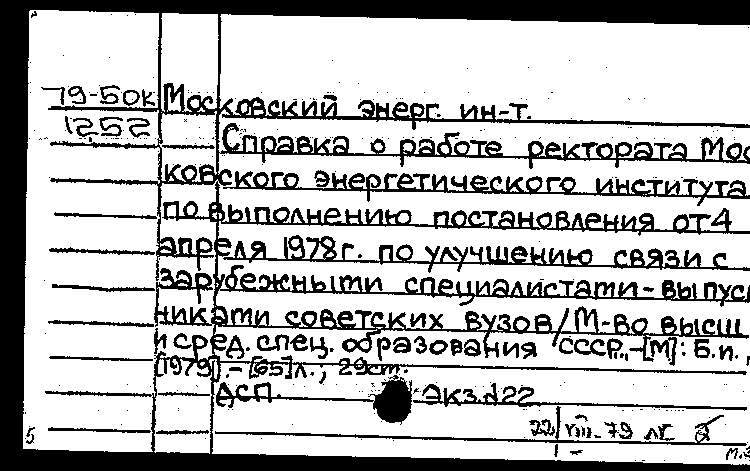 79-50к Московский энерг. ин-т.
1252
Справка о работе ректората Мос
ковского энергетического института
по выполнению постановления от 4
апреля 1978 г. по улучшению связи с
зарубежными специалистами-выпуск
никами советских вузов/М-во высш
и сред. спец. образования СССР.,-[М]: Б.и.,
[1979].- [65]л., 29см.
ДСП. Экз.д22
22/VIII-79
5